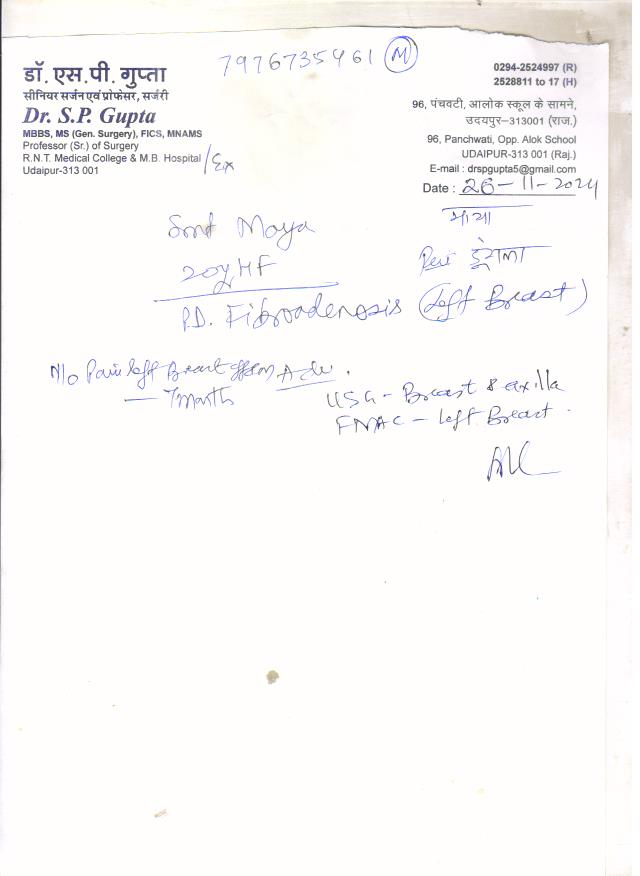 7976735461 (M)
डॉ. एस.पी. गुप्ता
सीनियर सर्जन एवं प्रोफेसर, सर्जरी
Dr. S.P. Gupta
MBBS, MS (Gen. Surgery), FICS, MNAMS
Professor (Sr.) of Surgery
R.N.T. Medical College & M.B. Hospital /Ex
Udaipur-313 001
0294-2524997 (R)
2528811 to 17 (H)
96, पंचवटी, आलोक स्कूल के सामने,
उदयपुर–313001 (राज.)
96, Panchwati, Opp. Alok School
UDAIPUR-313 001 (Raj.)
E-mail : drspgupta5@gmail.com
Date : 26-11-2024
Smt Maya
माया
20y HF
P.D. Fibroadenosis (Left Breast)
H/o Pain left Breast
Adv.
— 7 month
USG - Breast & axilla
FNAC - left Breast